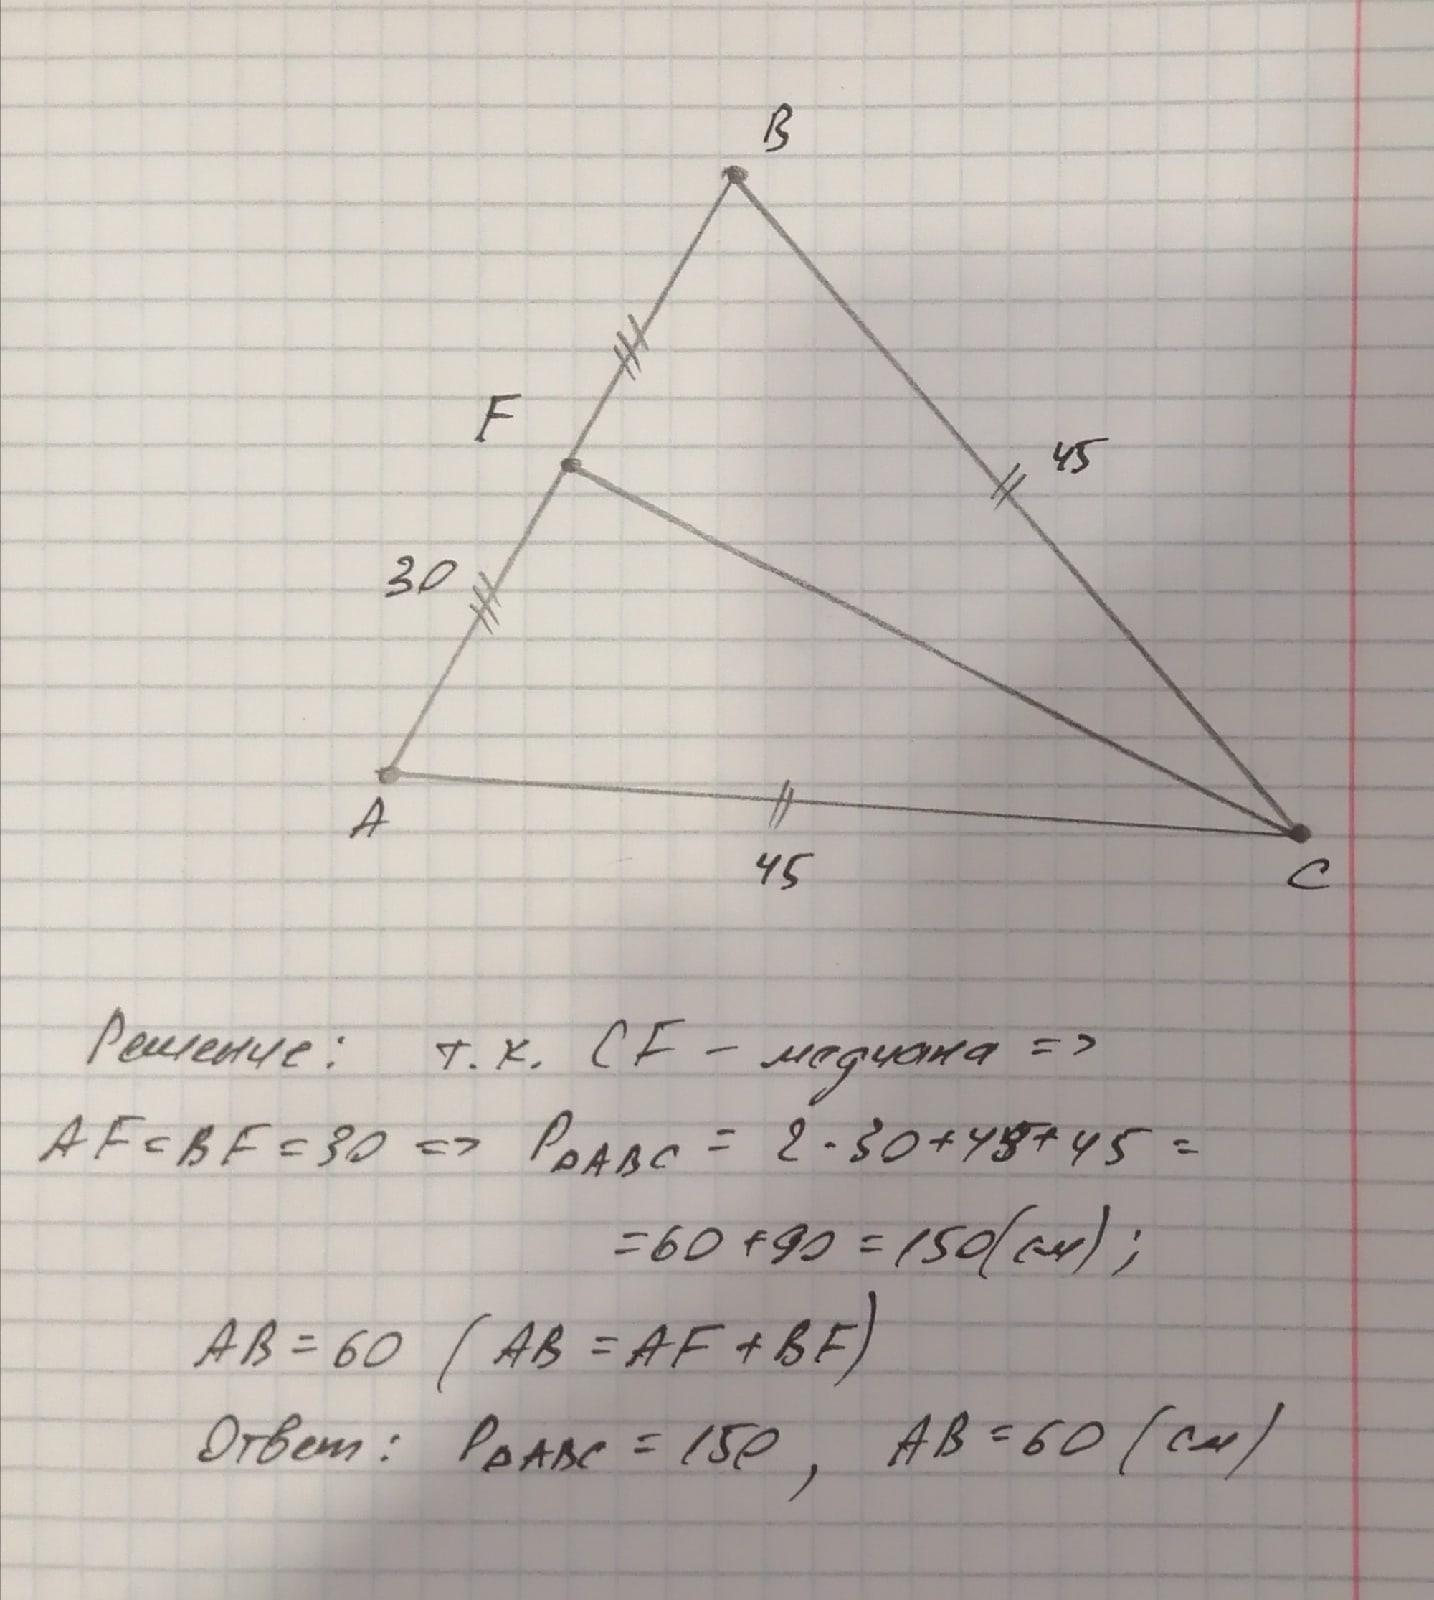 B
F
45
30
A
45
C
Решение: т.к. CF - медиана =>
AF = BF = 30 => P△ABC = 2·30+45+45 =
=60+90=150(см);
AB=60 (AB=AF+BF)
Ответ: P△ABC = 150, AB=60 (см)